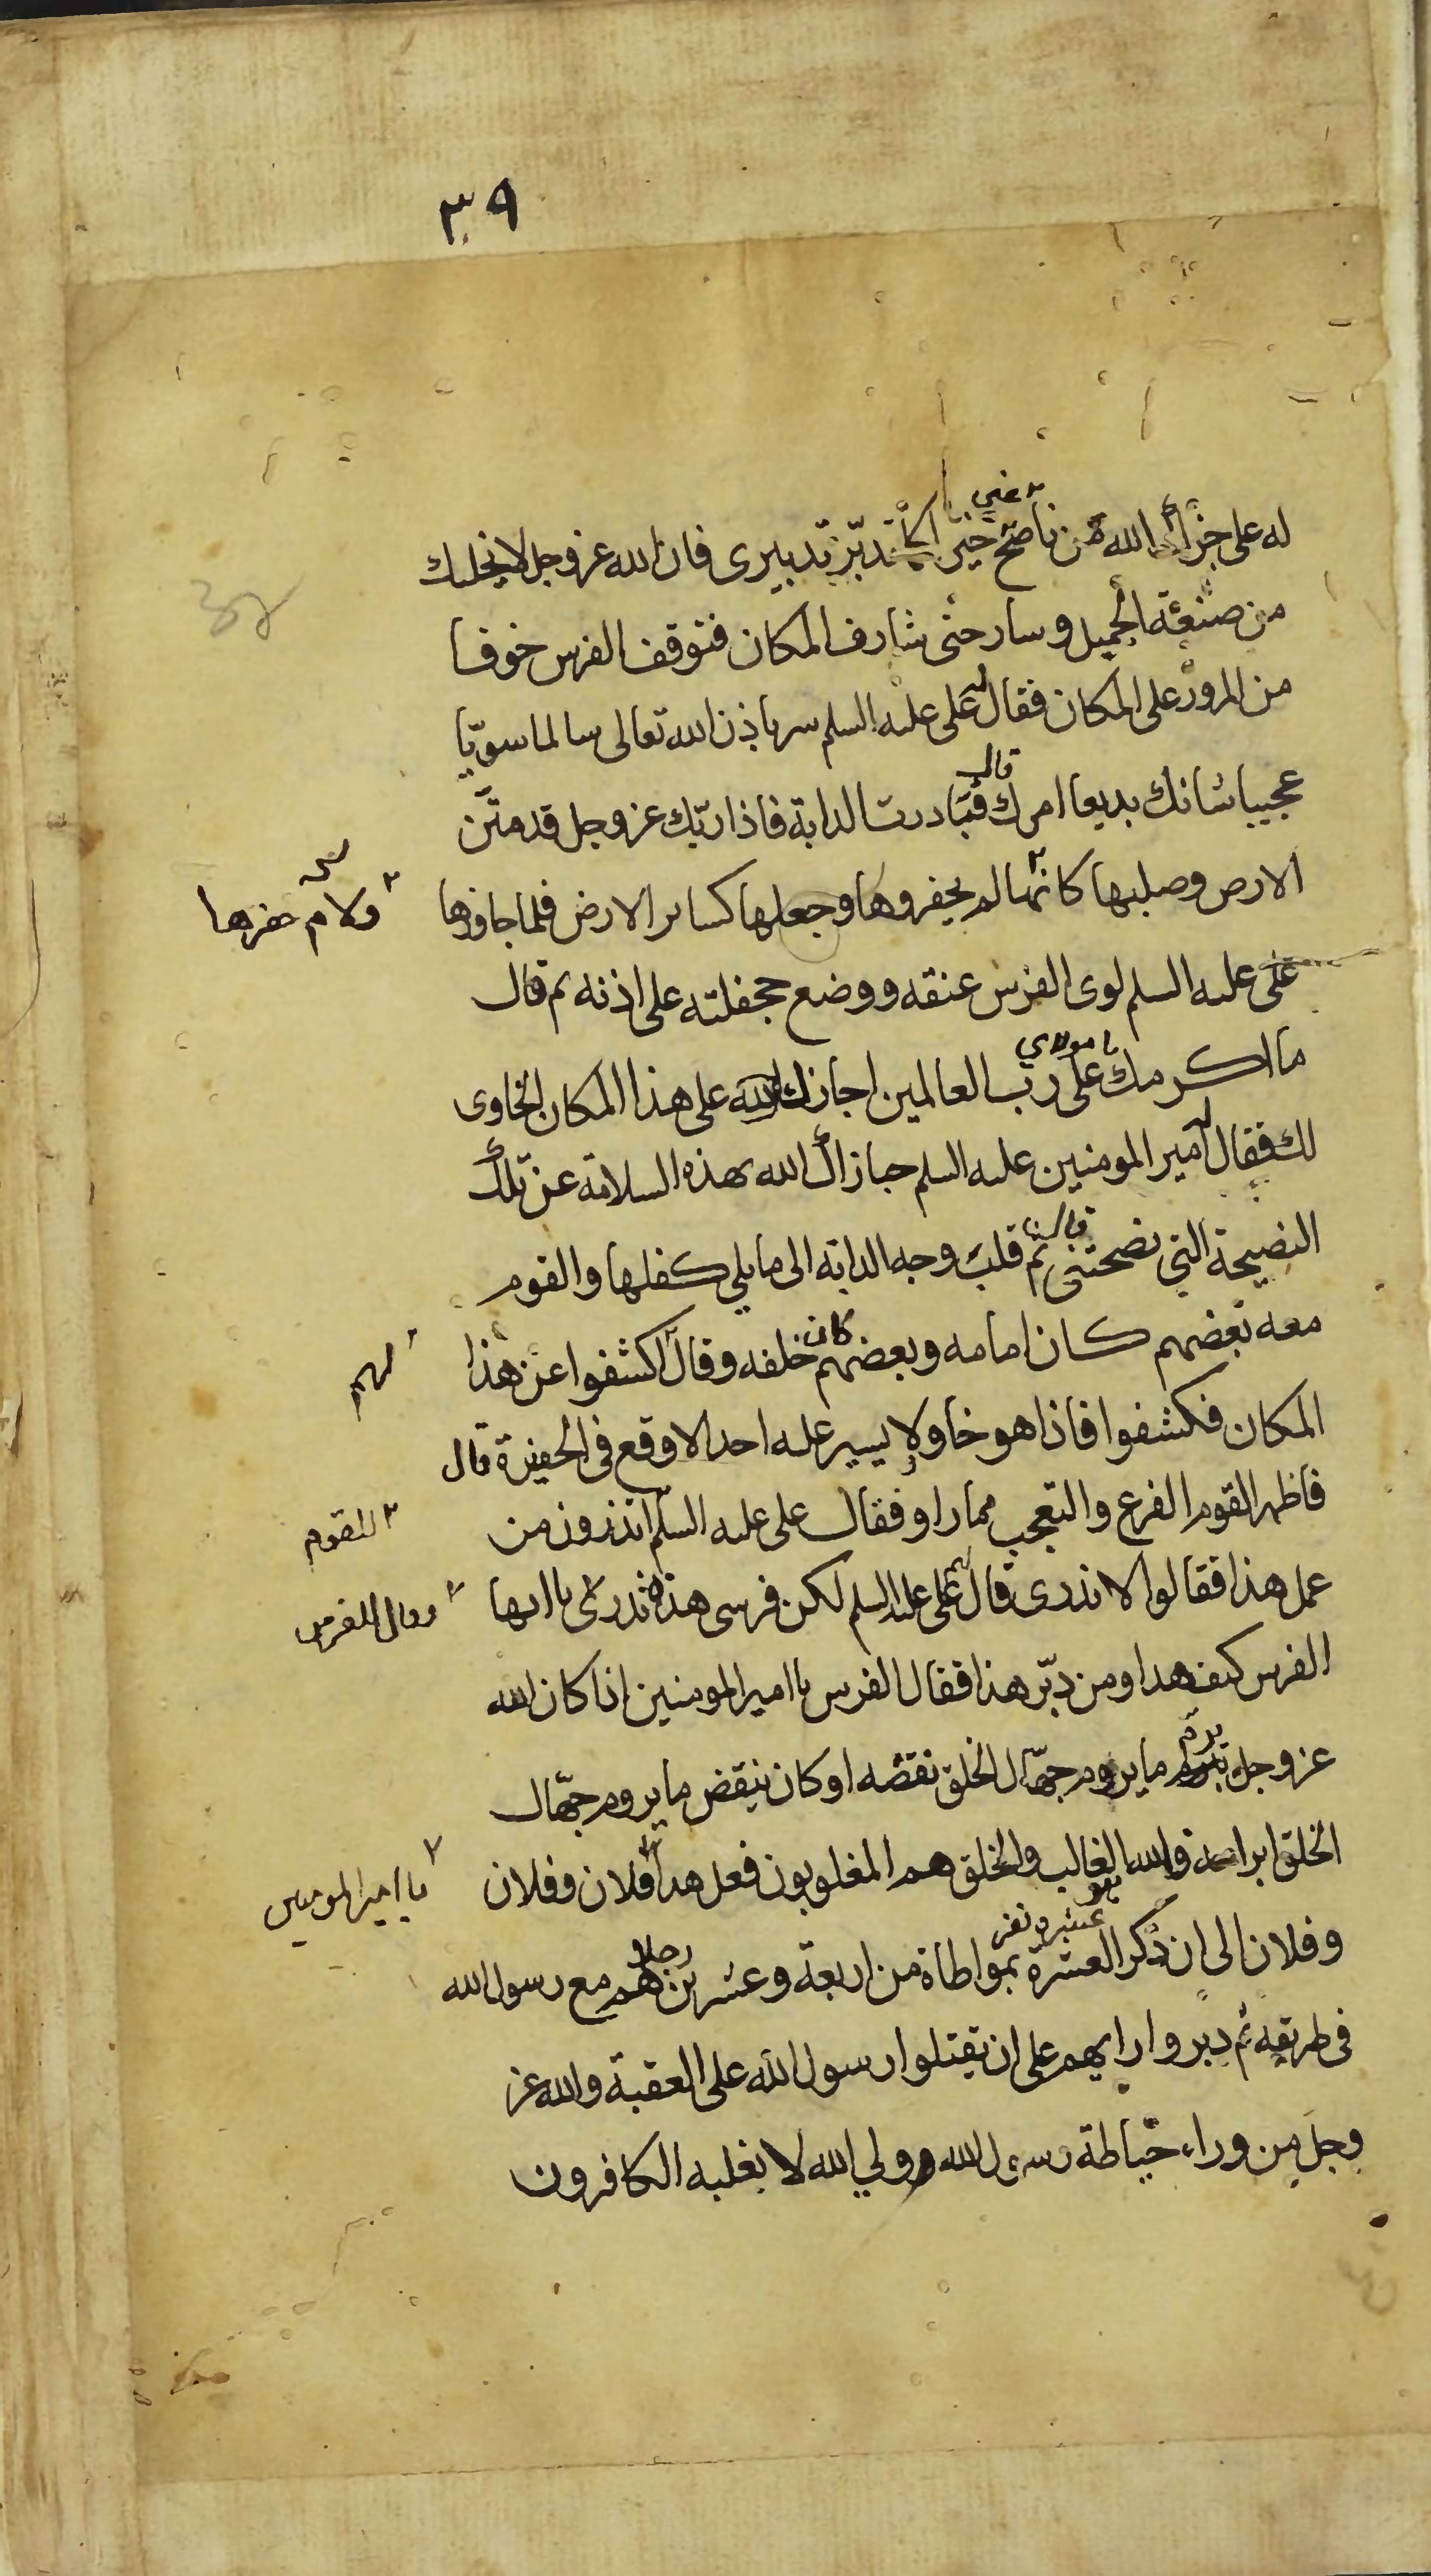 ٣٩
له على جزاك الله من ناصح خيرا كما تدبر تدبيرى فان الله عز وجل لا يخليك
عني
من صنعه الجميل وسار حتى شارف المكان فتوقف الفرس خوفا
من المرور على المكان فقال على عليه السلم سر باذن الله تعالى سالما سويّا
قال
عجيبا شانك بديعا امرك فتبادرت الدابة فاذا ربّك عز وجل قد متّن
الارض وصلبها كانها لم يحفروها وجعلها كساير الارض فلما جاوزها
ولام حفرها
على عليه السلم لوى الفرس عنقه ووضع جحفلته على اذنه ثم قال
يا مولاي
ما اكرمك على رب العالمين اجازك الله على هذا المكان الخاوى
لك فقال امير المومنين عليه السلم جازاك الله بهذه السلامة عن تلك
قال
النصيحة التي نصحتني ثم قلب وجه الدابة الى ما يلي كفلها والقوم
معه بعضهم كان امامه وبعضهم كان خلفه وقال اكشفوا عن هذا
لهم
المكان فكشفوا فاذا هو خاو ولا يسير عليه احد الا وقع في الحفيرة قال
فاظهر القوم الفزع والتعجب مما راو فقال على عليه السلم اتدرون من
للقوم
عمل هذا فقالوا لا ندرى قال على عليه السلم لكن فرسى هذه تدرى يا ايها
وقال للفرس
الفرس كيف هذا ومن دبّر هذا فقال الفرس يا امير المومنين اذا كان الله
عز وجل يبرم ما يروم جهّال الخلق نقضه او كان ينقض ما يروم جهّال
الخلق ابرامه فالله الغالب والخلق هم المغلوبون فعل هذا فلان وفلان
يا امير المومنين
وفلان الى ان ذكر العشرة بمواطاة من اربعة وعشرين هم مع رسول الله
رجلا
فى طريقه ثم دبروا رايهم على ان يقتلوا رسول الله على العقبة والله عز
وجل من وراء حياطة رسول الله وولي الله لا يغلبه الكافرون